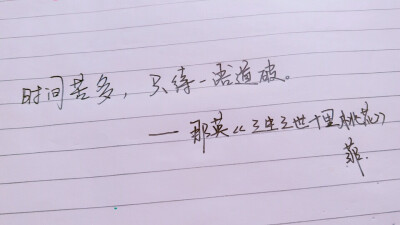 时间苦多，只待一语道破。
——那英《三生三世十里桃花》
菲.